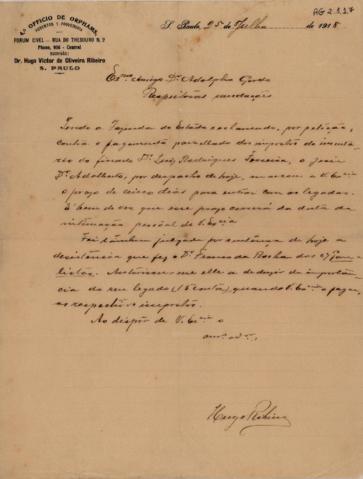 4º OFFICIO DE ORPHAMS,
AUSENTES E PROVEDORIA
FORUM CIVEL - RUA DO THESOURO N. 2
Phone, 906 - Central
ESCRIVÃO:
Dr. Hugo Victor de Oliveira Ribeiro
S. PAULO
AG 2.3.27
S. Paulo, 25 de Julho de 1918
Ex.mo Amigo Dr. Adolpho Gordo
Respeitosas saudações
Tendo a Fazenda do Estado reclamado, por petição,
contra o pagamento parcellado dos impostos do inventa
rio do finado Dr. Luiz Rodrigues Ferreira, o Juiz
Dr. Adalberto, por despacho de hoje, marcou a V. Ex.cia
o prazo de cinco dias para entrar com os legados.
É bem de ver que esse prazo correrá da data da
intimação pessoal de V. Ex.cia
Foi tambem julgada por sentença de hoje a
desistencia que fez o Dr. Franco da Rocha dos
Autorisou-me elle a deduzir da importan
cia do seu legado quando V. Ex.cia o pagar,
os respectivos impostos.
Ao dispôr de V. Ex.cia o
Hugo Ribeiro